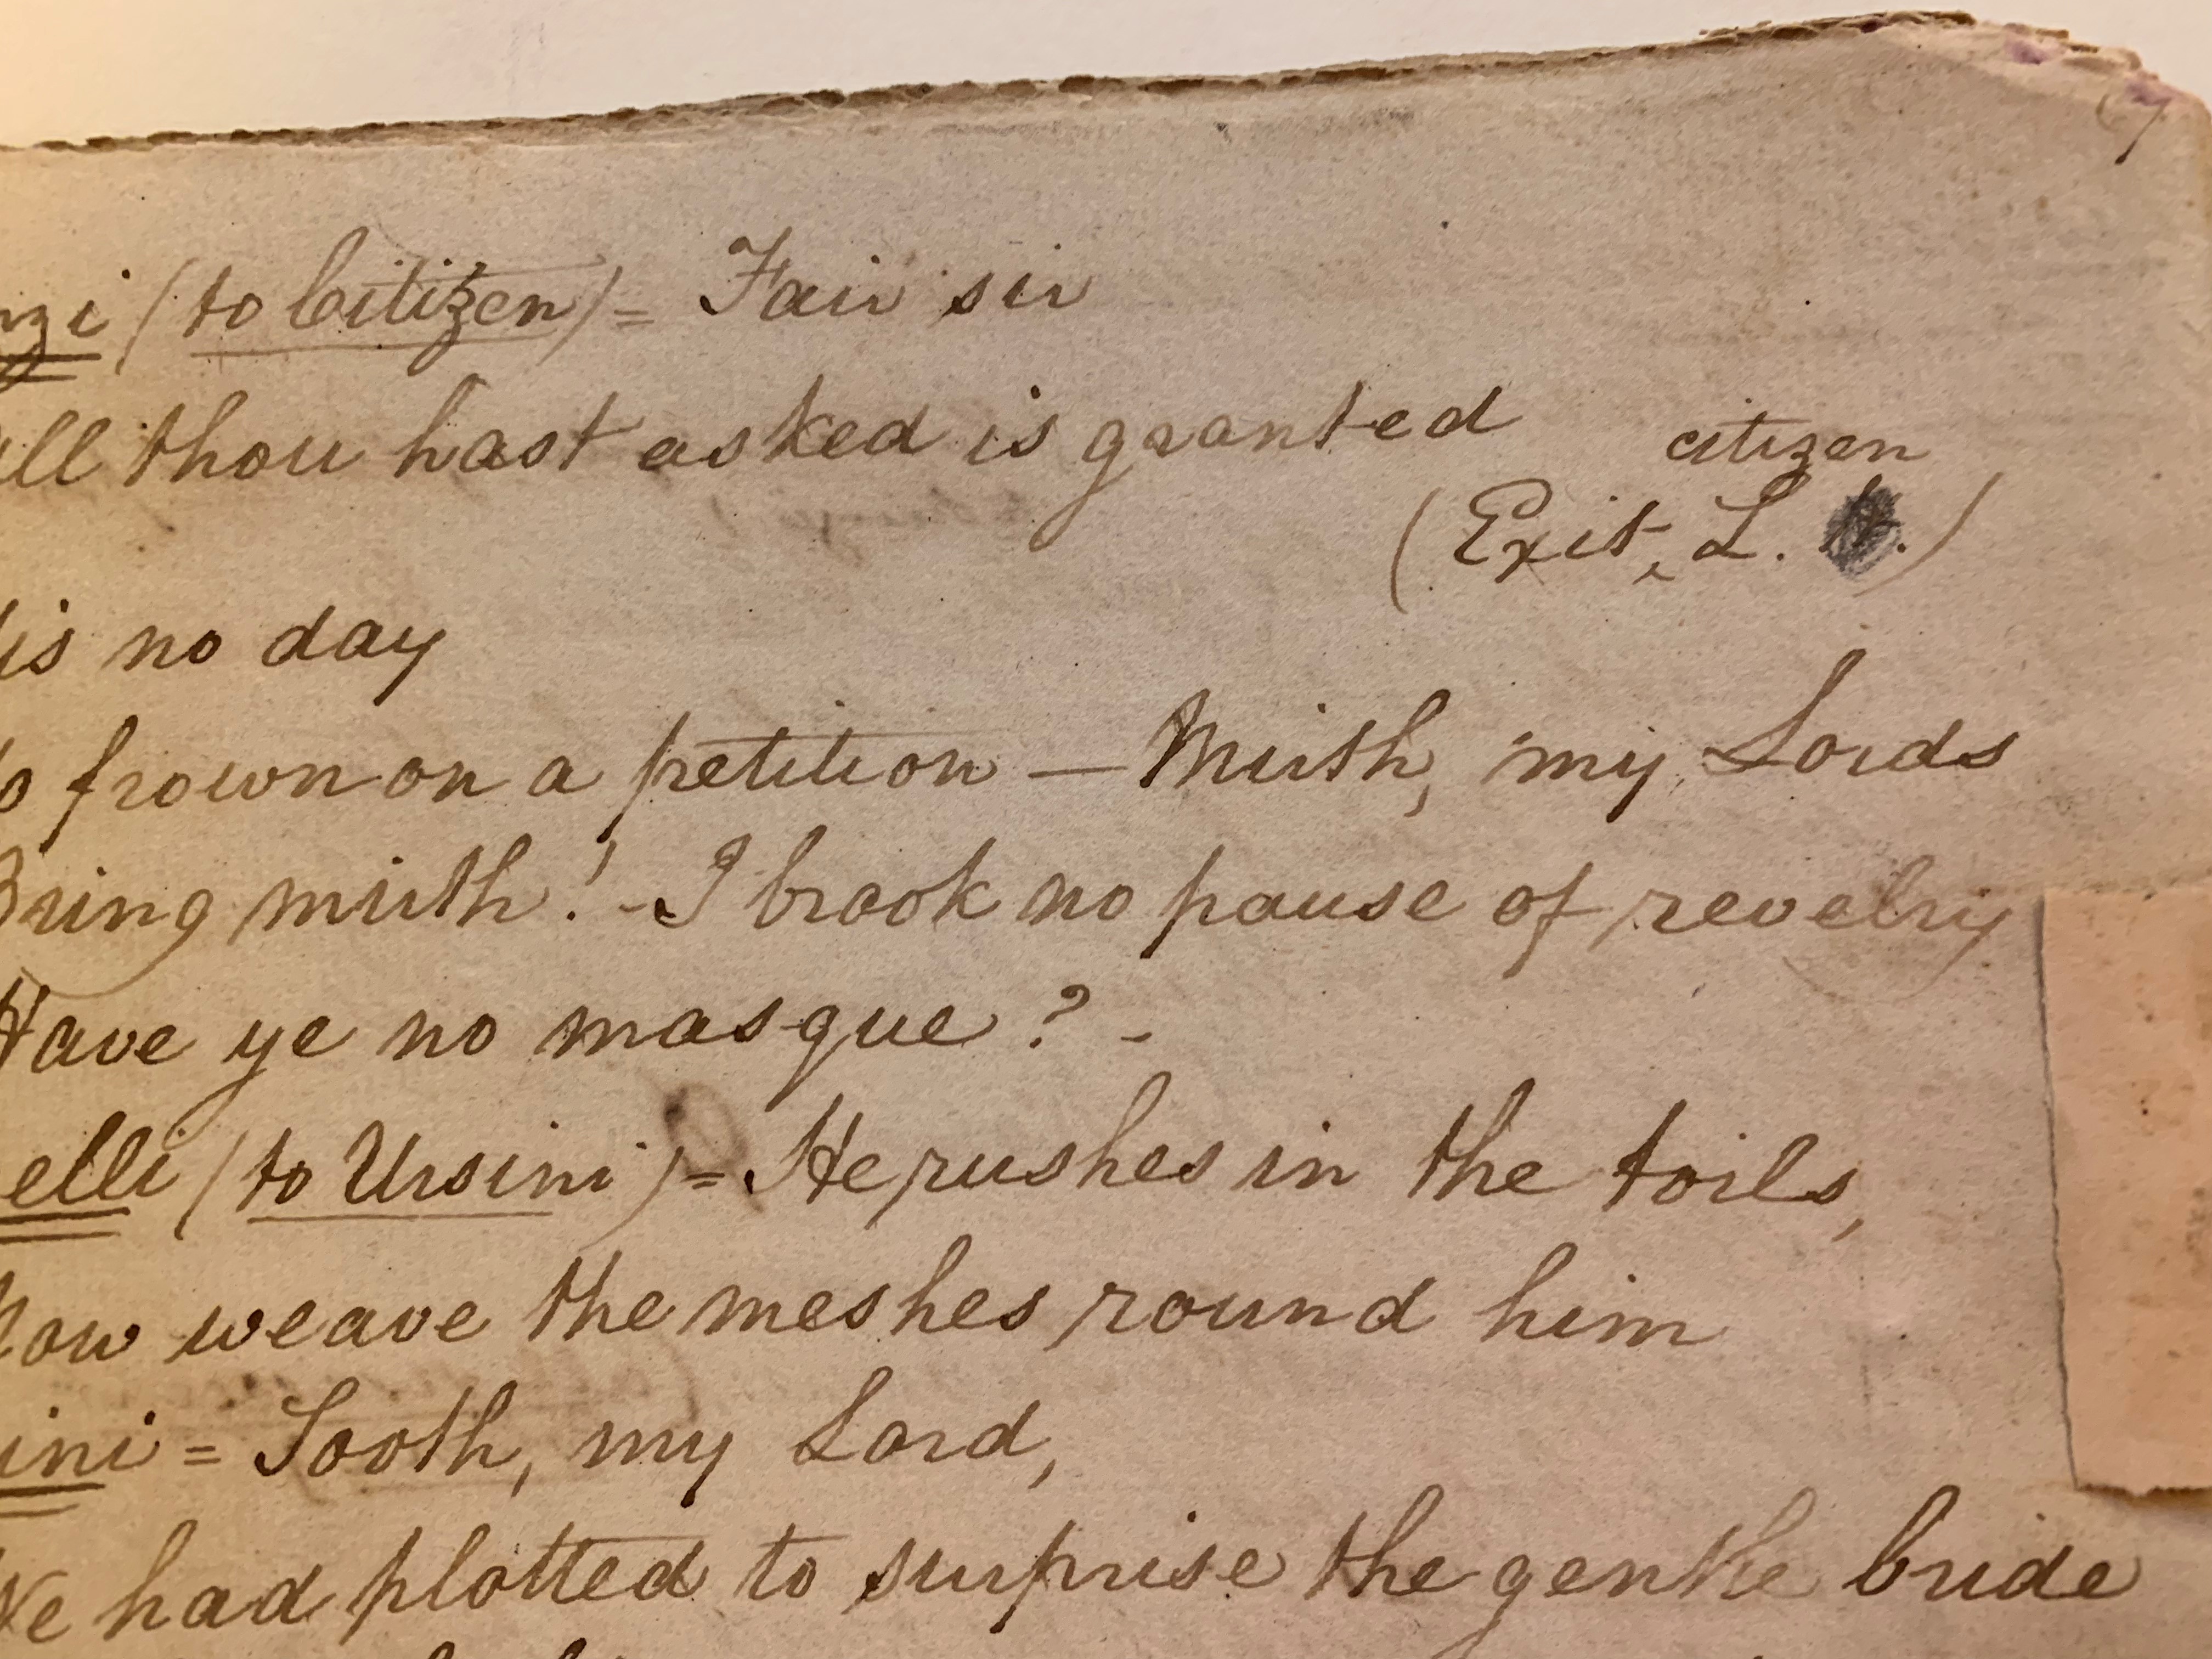 nzi (to Citizen) = Fair sir
all thou hast asked is granted
citizen
(Exit, ‸ L. .)
is no day
o frown on a petition — Mirth, my Lords
Bring mirth! - I brook no pause of revelry
Have ye no masque? -
elli (to Ursini) = He rushes in the toils,
Now weave the meshes round him
ini = Sooth, my Lord,
We had plotted to surprise the gentle bride